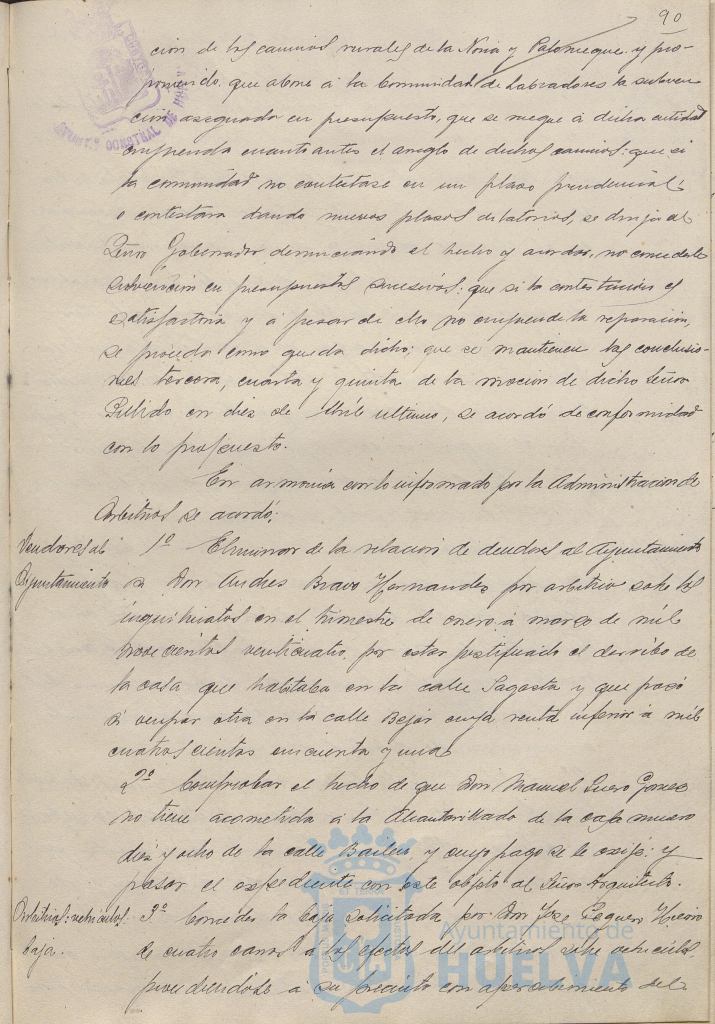 90
cion de los caminos rurales de la Noria y Palomeque y pro-
poniendo que abone á la Comunidad de Labradores la subven-
cion asegurada en presupuesto, que se ruegue á dicha entidad
emprenda cuanto antes el arreglo de dichos caminos: que si
la comunidad no contestase en un plazo prudencial;
o contestara dando nuevos plazos dilatorios, se dirija al
Señor Gobernador denunciando el hecho y acordar, no concederle
subvencion en presupuestos sucesivos: que si la contestacion es
satisfactoria y á pesar de ello no emprende la reparacion,
se proceda como queda dicho; que se mantienen las conclusio-
nes tercera, cuarta y quinta de la mocion de dicho Señor
Pulido en diez de Abril ultimo, se acordó de conformidad
con lo propuesto.
En armonia con lo informado por la Administracion de
Arbitrios se acordó:
Deudores al
Ayuntamiento
1º Eliminar de la relacion de deudores al Ayuntamiento
á Don Andres Bravo Hernandez por arbitrio sobre los
inquilinatos en el trimestre de enero á marzo de mil
novecientos veinticuatro, por estar justificado el derribo de
la casa que habitaba en la calle Sagasta y que pasó
á ocupar otra en la calle Bejar cuya renta inferior á mil
cuatrocientas cincuenta y una
2º Comprobar el hecho de que Don Manuel Suero Gomez
no tiene acometida á la Alcantarillado de la casa numero
diez y ocho de la calle Bailen, y cuyo pago se le exije: y
pasar el expediente con este objeto al Señor Arquitecto.
Arbitrios: vehiculos.
baja.
3º Conceder la baja solicitada por Don Jose Peguero
de cuatro carros á los efectos del arbitrio sobre vehiculos,
procediendose á su precinto con apercibimiento del
Ayuntamiento de
HUELVA